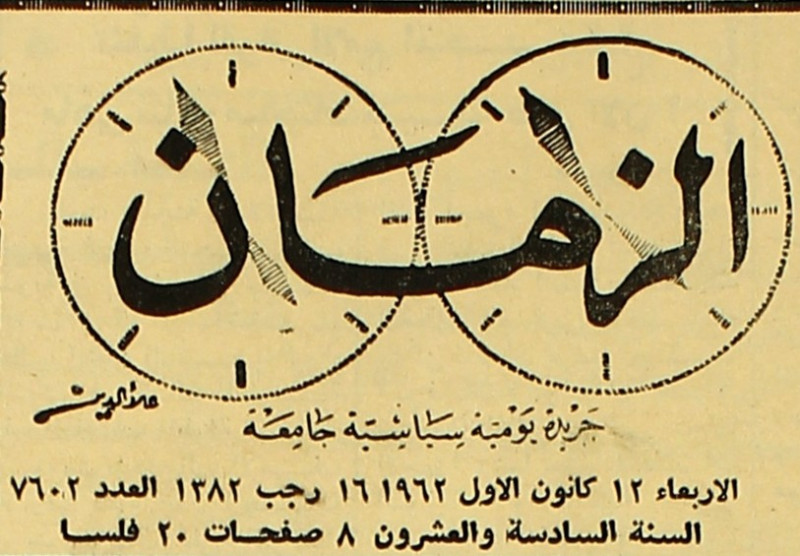 الزمان
علاء الدين
جريدة يومية سياسية جامعة
الاربعاء ١٢ كانون الاول ١٩٦٢ ١٦ رجب ١٣٨٢ العدد ٧٦٠٢
السنة السادسة والعشرون ٨ صفحات ٢٠ فلسا